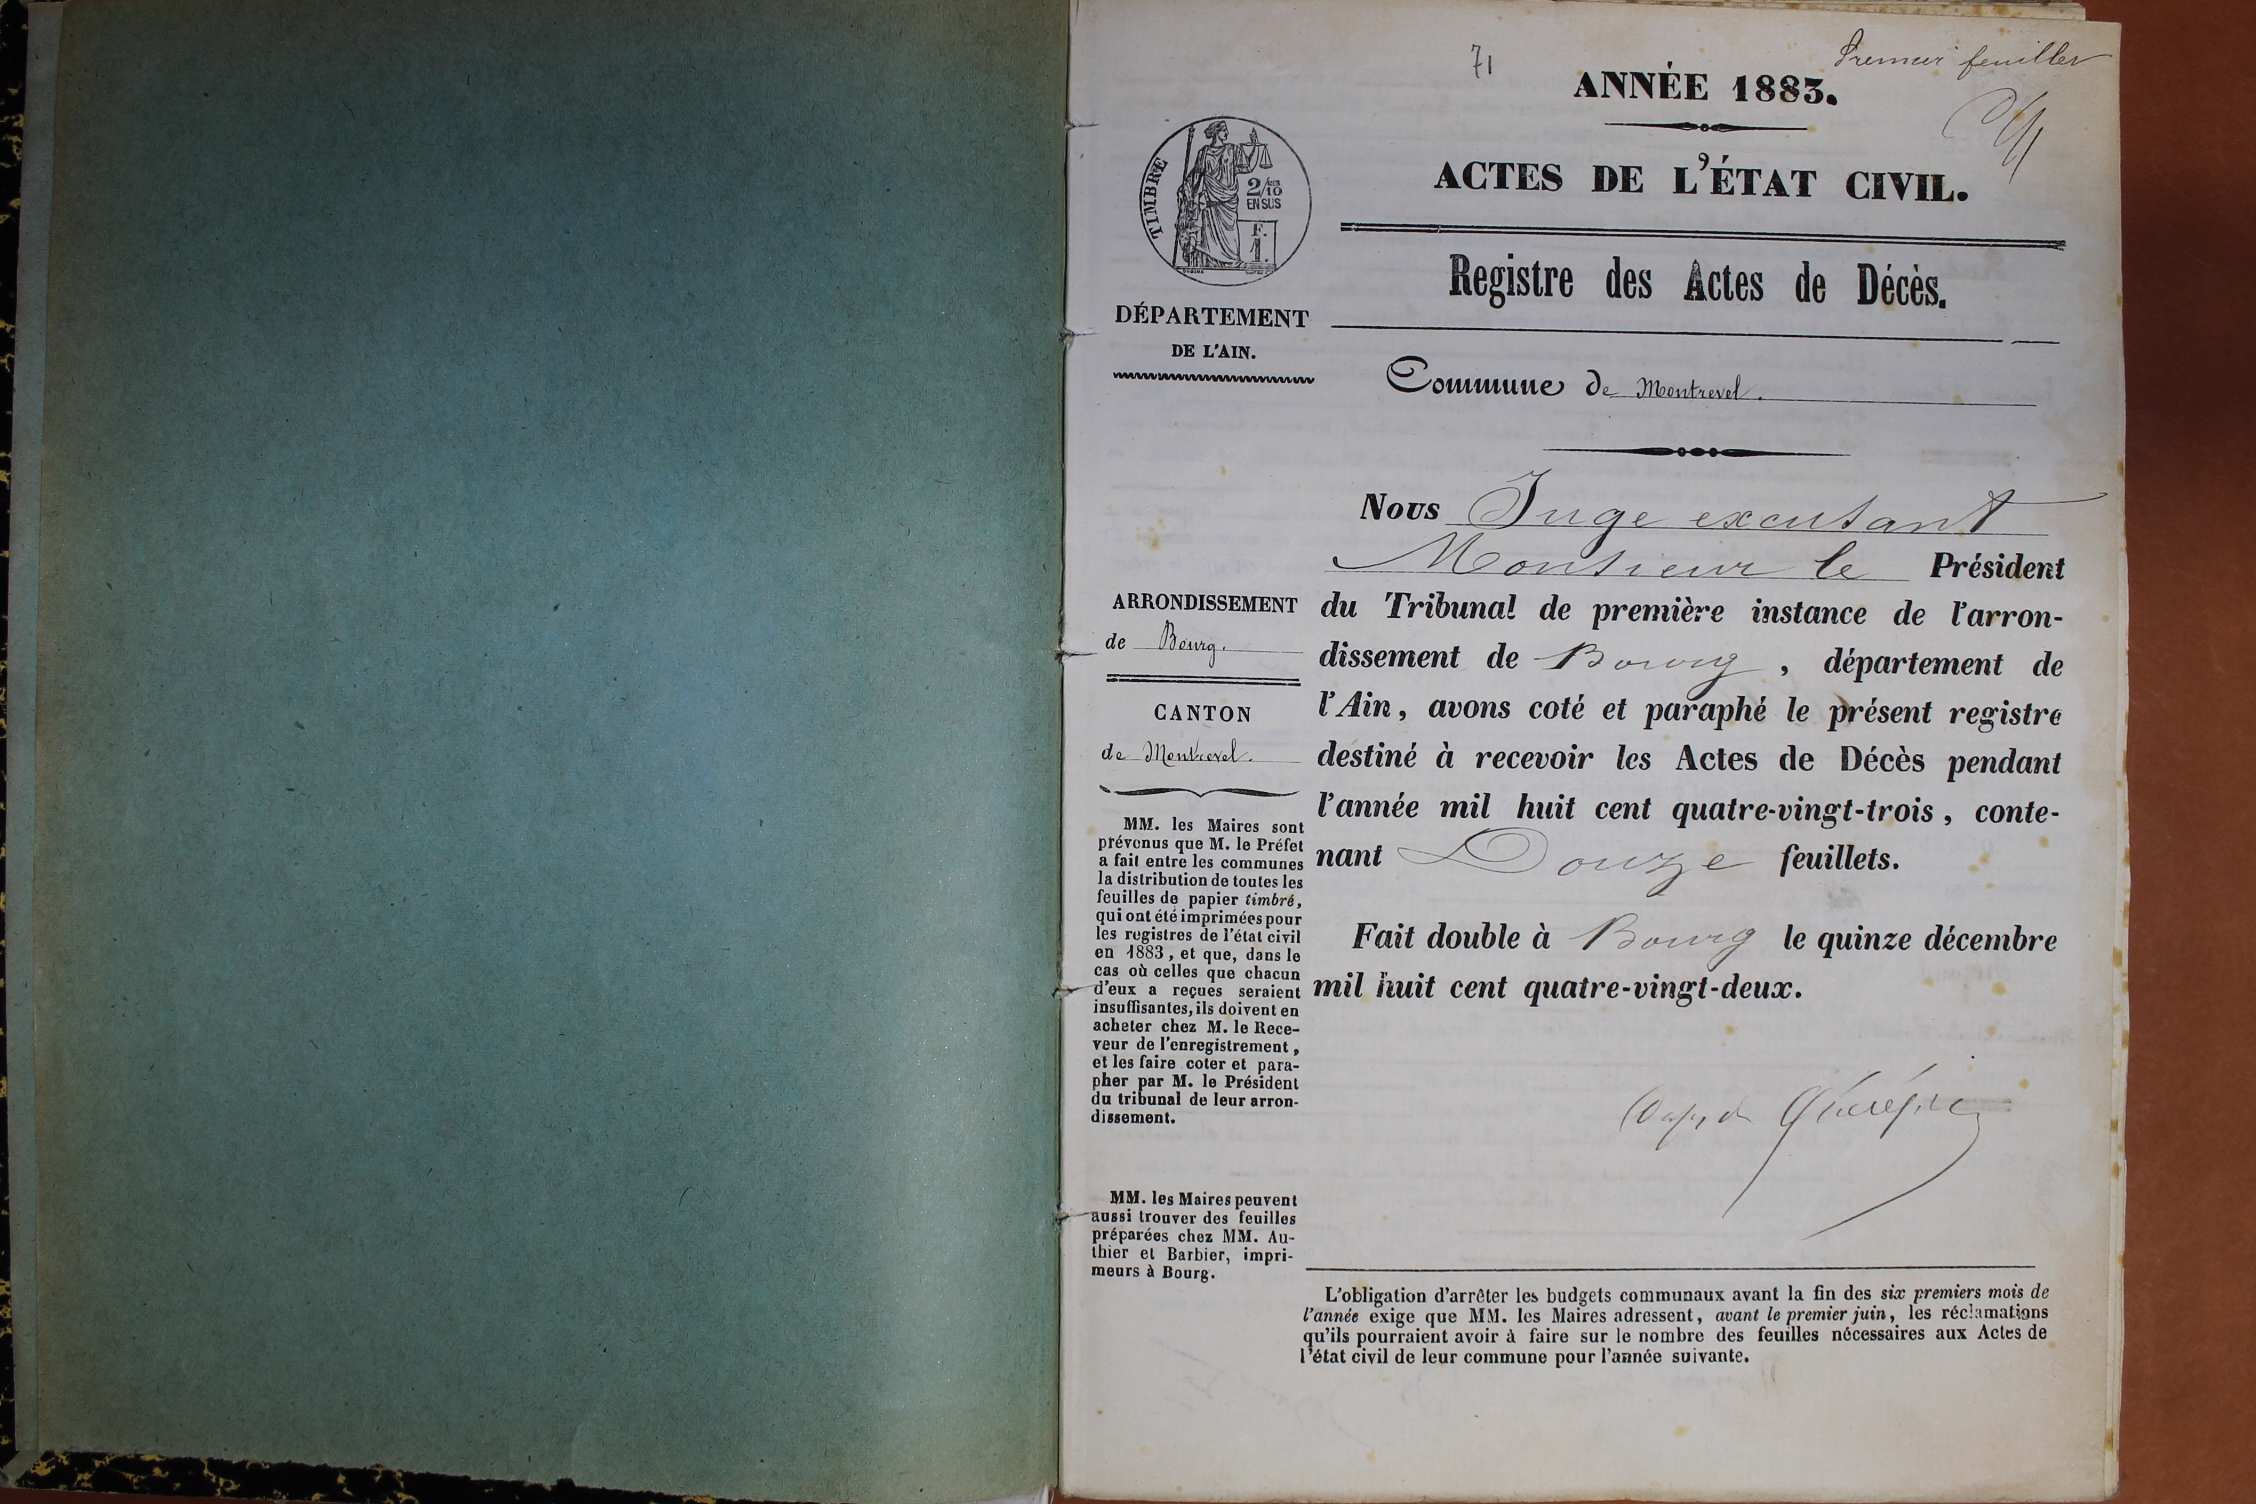 71
Premier feuillet
ANNÉE 1883.
ACTES DE L'ÉTAT CIVIL.
TIMBRE
2/10
EN SUS
F.
1.
Registre des Actes de Décès.
DÉPARTEMENT
DE L'AIN.
Commune de Montrevel.
Nous Juge excusant
Monsieur le Président
du Tribunal de première instance de l'arron-
dissement de Bourg, département de
l'Ain, avons coté et paraphé le présent registre
destiné à recevoir les Actes de Décès pendant
l'année mil huit cent quatre-vingt-trois, conte-
nant Douze feuillets.
Fait double à Bourg le quinze décembre
mil huit cent quatre-vingt-deux.
ARRONDISSEMENT
de Bourg.
CANTON
de Montrevel.
MM. les Maires sont
prévenus que M. le Préfet
a fait entre les communes
la distribution de toutes les
feuilles de papier timbré,
qui ont été imprimées pour
les registres de l'état civil
en 1883, et que, dans le
cas où celles que chacun
d'eux a reçues seraient
insuffisantes, ils doivent en
acheter chez M. le Rece-
veur de l'enregistrement,
et les faire coter et para-
pher par M. le Président
du tribunal de leur arron-
dissement.
MM. les Maires peuvent
aussi trouver des feuilles
préparées chez MM. Au-
thier et Barbier, impri-
meurs à Bourg.
L'obligation d'arrêter les budgets communaux avant la fin des six premiers mois de
l'année exige que MM. les Maires adressent, avant le premier juin, les réclamations
qu'ils pourraient avoir à faire sur le nombre des feuilles nécessaires aux Actes de
l'état civil de leur commune pour l'année suivante.